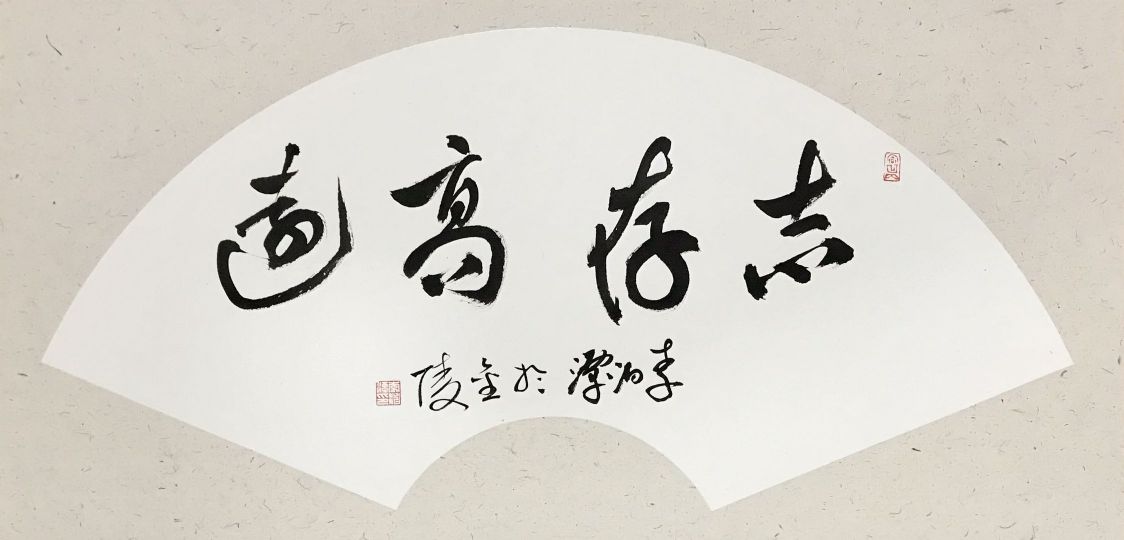 志存高遠
李泊潭於金陵